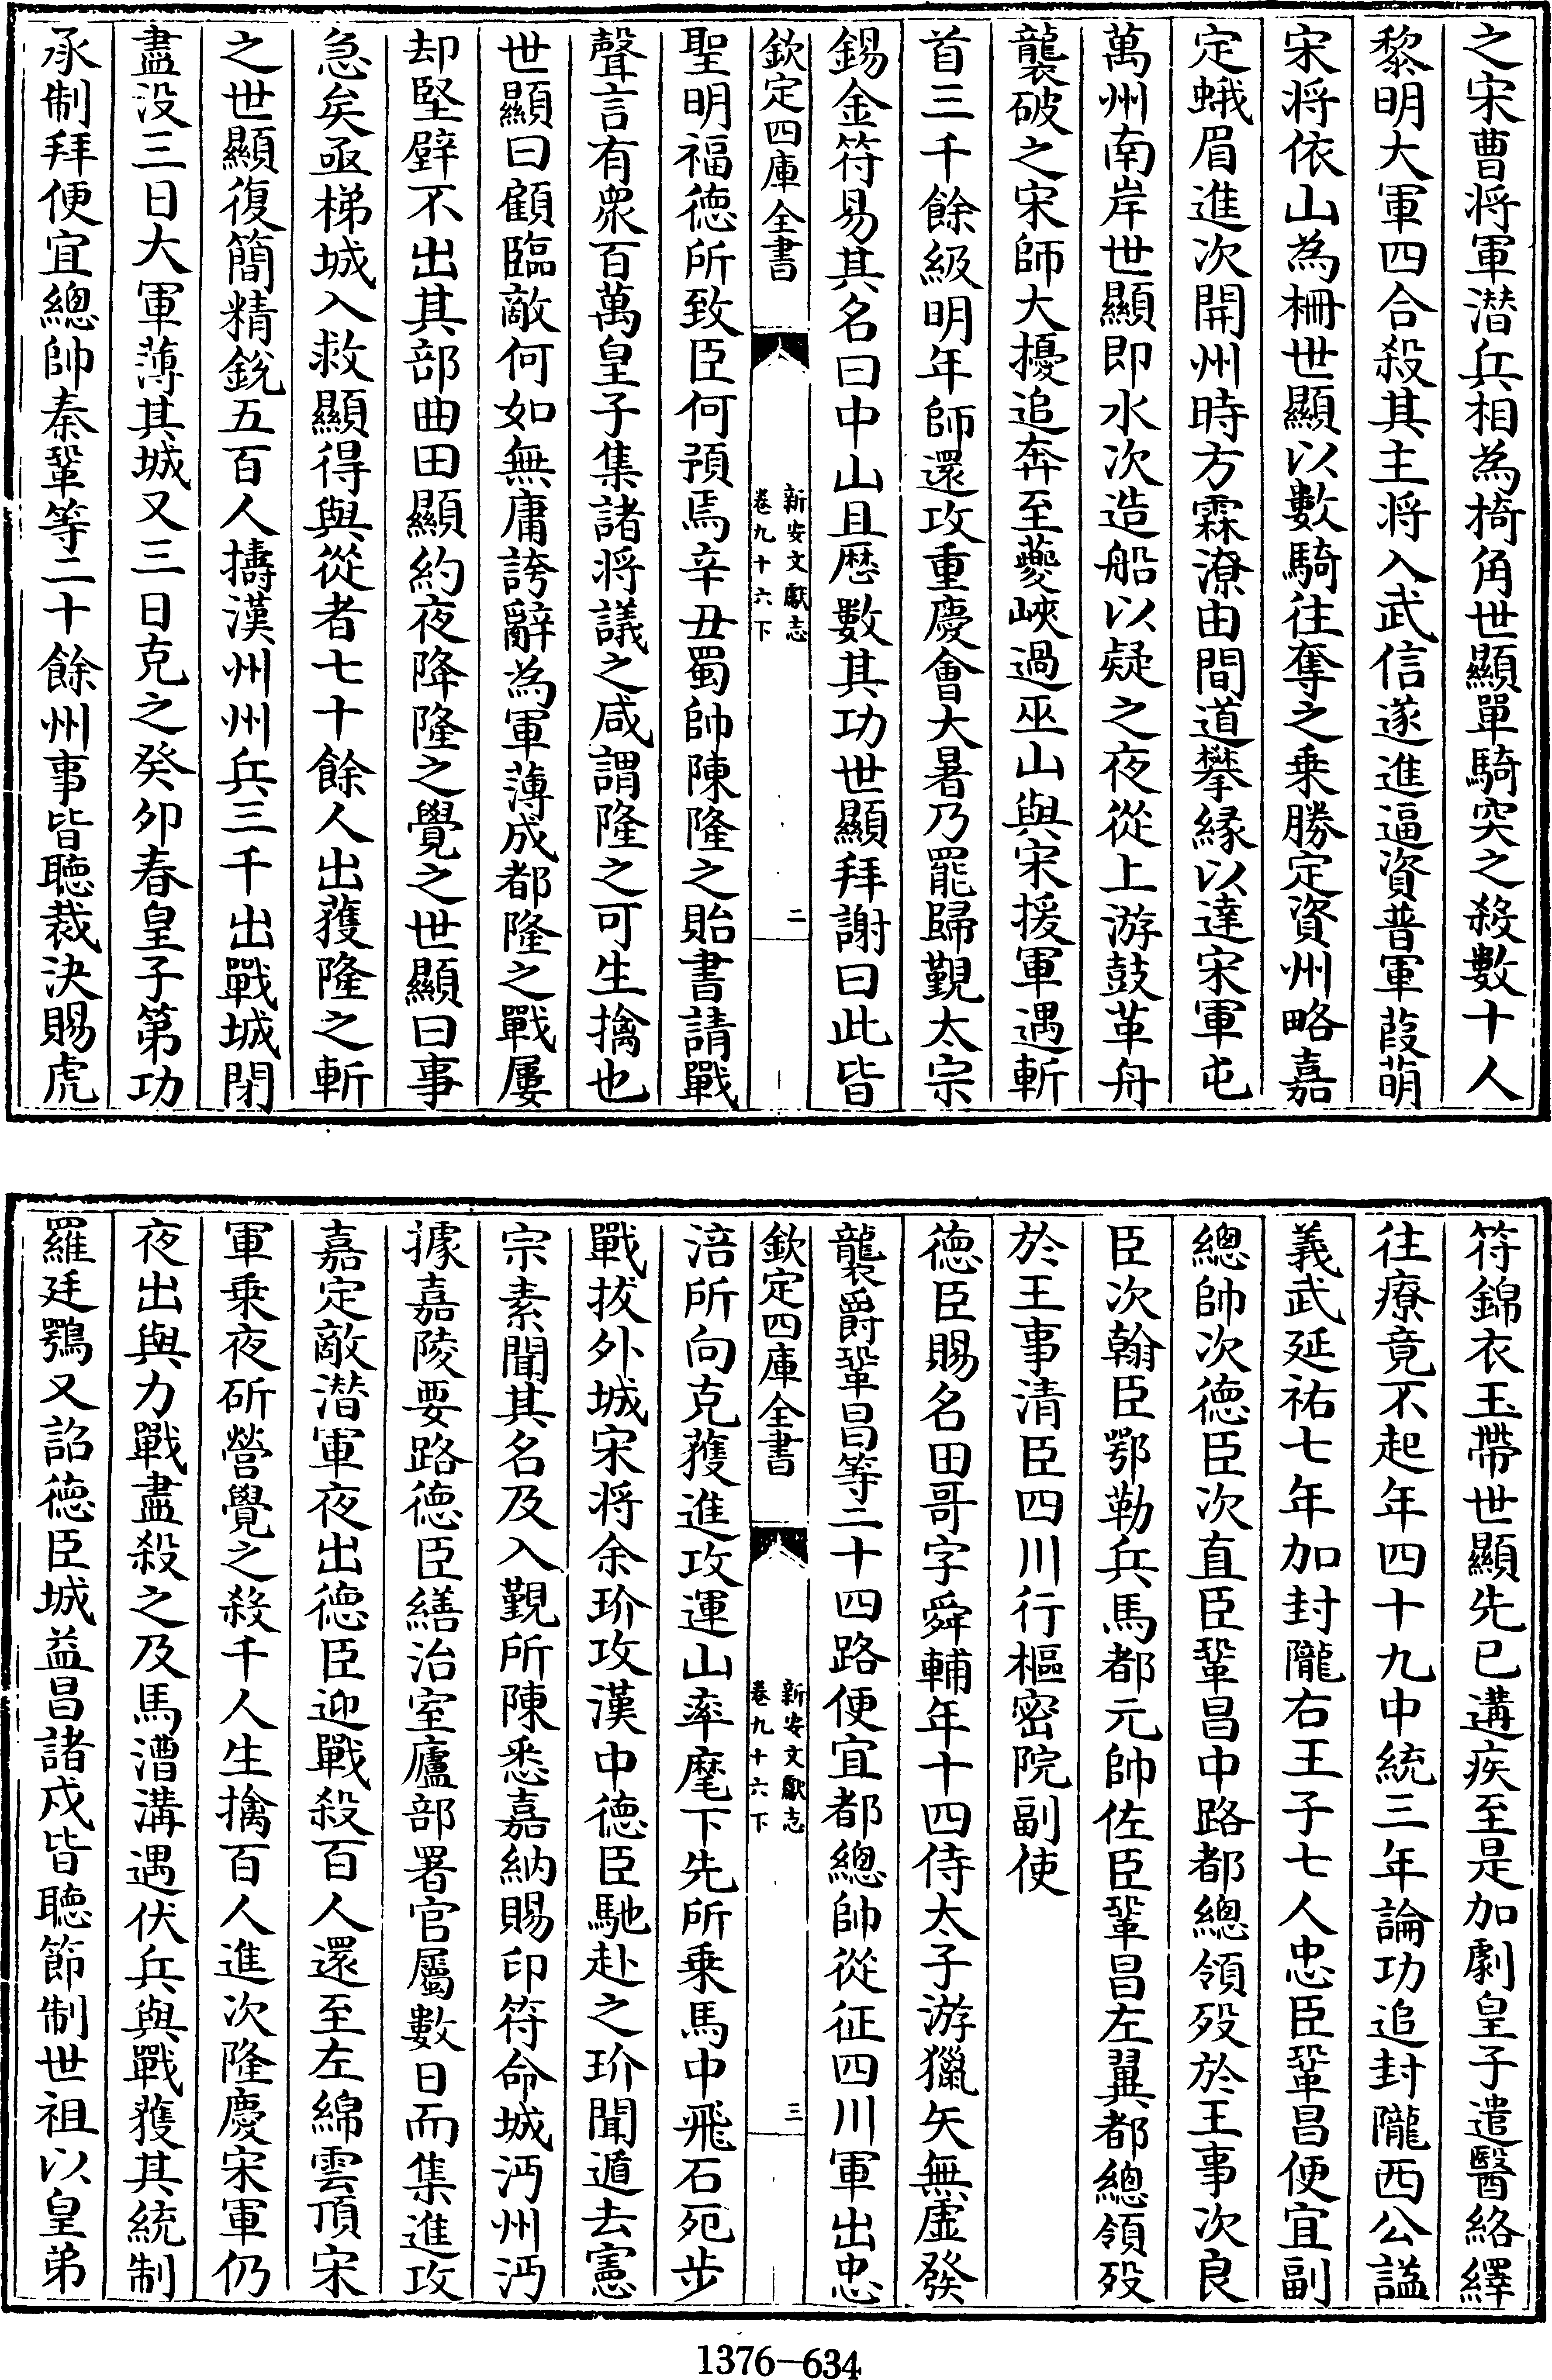 之宋曹將軍潜兵相為掎角世顯單騎突之殺數十人
黎明大軍四合殺其主將入武信遂進逼資普軍葭萌
宋將依山為柵世顯以數騎往奪之乗勝定資州略嘉
定峨眉進次開州時方霖潦由間道攀緣以達宋軍屯
萬州南岸世顯即水次造船以疑之夜從上游鼓革舟
襲破之宋師大擾追奔至夔峽過巫山與宋援軍遇斬
首三千餘級明年師還攻重慶會大暑乃罷歸覲太宗
錫金符易其名曰中山且歴數其功世顯拜謝曰此皆
欽定四庫全書
新安文獻志
卷九十六下
二
聖明福德所致臣何預焉辛丑蜀帥陳隆之貽書請戰
聲言有衆百萬皇子集諸將議之咸謂隆之可生擒也
世顯曰顧臨敵何如無庸誇辭為軍薄成都隆之戰屢
却堅壁不出其部曲田顯約夜降隆之覺之世顯曰事
急矣亟梯城入救顯得與從者七十餘人出獲隆之斬
之世顯復簡精鋭五百人擣漢州州兵三千出戰城閉
盡没三日大軍薄其城又三日克之癸卯春皇子第功
承制拜便宜總帥秦鞏等二十餘州事皆聽裁決賜虎
符錦衣玉帶世顯先已遘疾至是加劇皇子遣醫絡繹
往療竟不起年四十九中統三年論功追封隴西公謚
義武延祐七年加封隴右王子七人忠臣鞏昌便宜副
總帥次德臣次直臣鞏昌中路都總領殁於王事次良
臣次翰臣鄂勒兵馬都元帥佐臣鞏昌左翼都總領殁
於王事清臣四川行樞密院副使
德臣賜名田哥字舜輔年十四侍太子游獵矢無虛發
襲爵鞏昌等二十四路便宜都總帥從征四川軍出忠
欽定四庫全書
新安文獻志
卷九十六下
三
涪所向克獲進攻運山率麾下先所乗馬中飛石死步
戰拔外城宋將余玠攻漢中德臣馳赴之玠聞遁去憲
宗素聞其名及入覲所陳悉嘉納賜印符命城沔州沔
據嘉陵要路德臣繕治室廬部署官屬數日而集進攻
嘉定敵潜軍夜出德臣迎戰殺百人還至左綿雲頂宋
軍乗夜斫營覺之殺千人生擒百人進次隆慶宋軍仍
夜出與力戰盡殺之及馬漕溝遇伏兵與戰獲其統制
羅廷鶚又詔德臣城益昌諸戍皆聽節制世祖以皇弟
1376—634